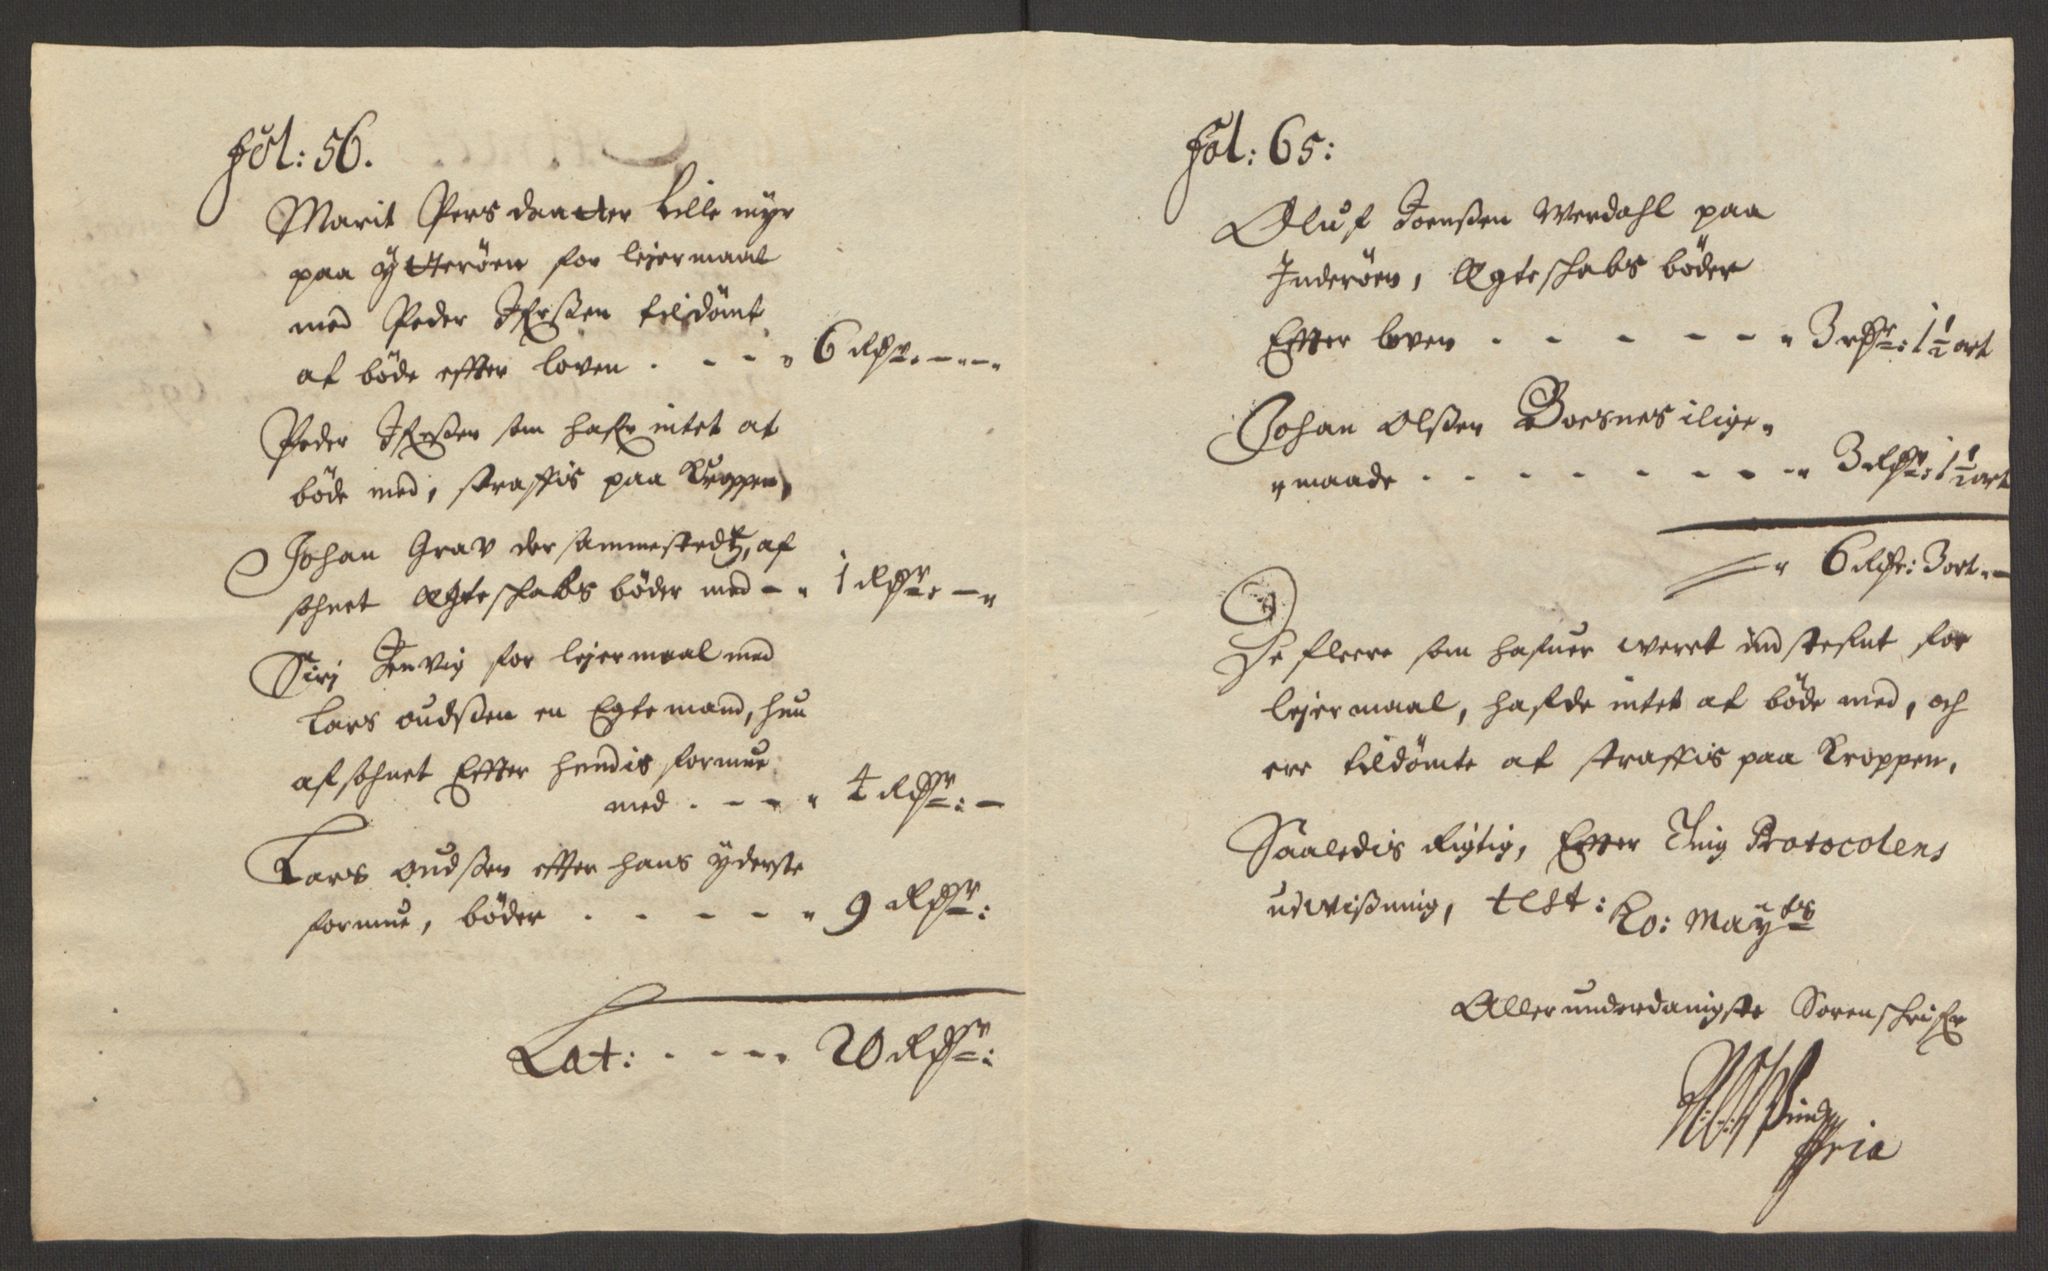 fol: 56.
Marit Persdaatter Lille myr
paa Ytterøen for lejermaal
med Peder Ifersßen tildømt
at bøde effter loven . - - - 6 Rdr. - - -
Peder Ifersßen som hafr intet at
bøde med, straffis paa Kroppen,
Johan Grav dersammestedtz, af
sohnet ægteskabs bøder med - - 1 Rdr. -
Sirj Jenvig for lejermaal med
Lars oudsßen en Egte mand, huu
afsohnet Effter hendis formue
med . - - - 4 Rdr: -
Lars oudsßen effter hans yderste
formue, bøder . - - - - 9 Rdr:
Lat: . - - - 20 Rdr:
fol: 65:
Oluf Joensßen Werdahl paa
Inderøen, Ægteskabs bøder
Effter loven . - - - - - 3 rdr: 1 1/2 ort
Johan Olsßen Boesnes ilige-
maade . - - - - - - 3 Rdr: 1 1/2 ort
6 Rdr: 3 ort -
De fleere som hafuer weret indstefnt for
lejermaal, hafde intet at bøde med, och
ere tildømte at straffis paa Kroppen,
Saaledis Rigtig, Effter Ting Protocolens
udwißning, test:
Ko: Mayts
Allerunderdanigste Sorenschrifr